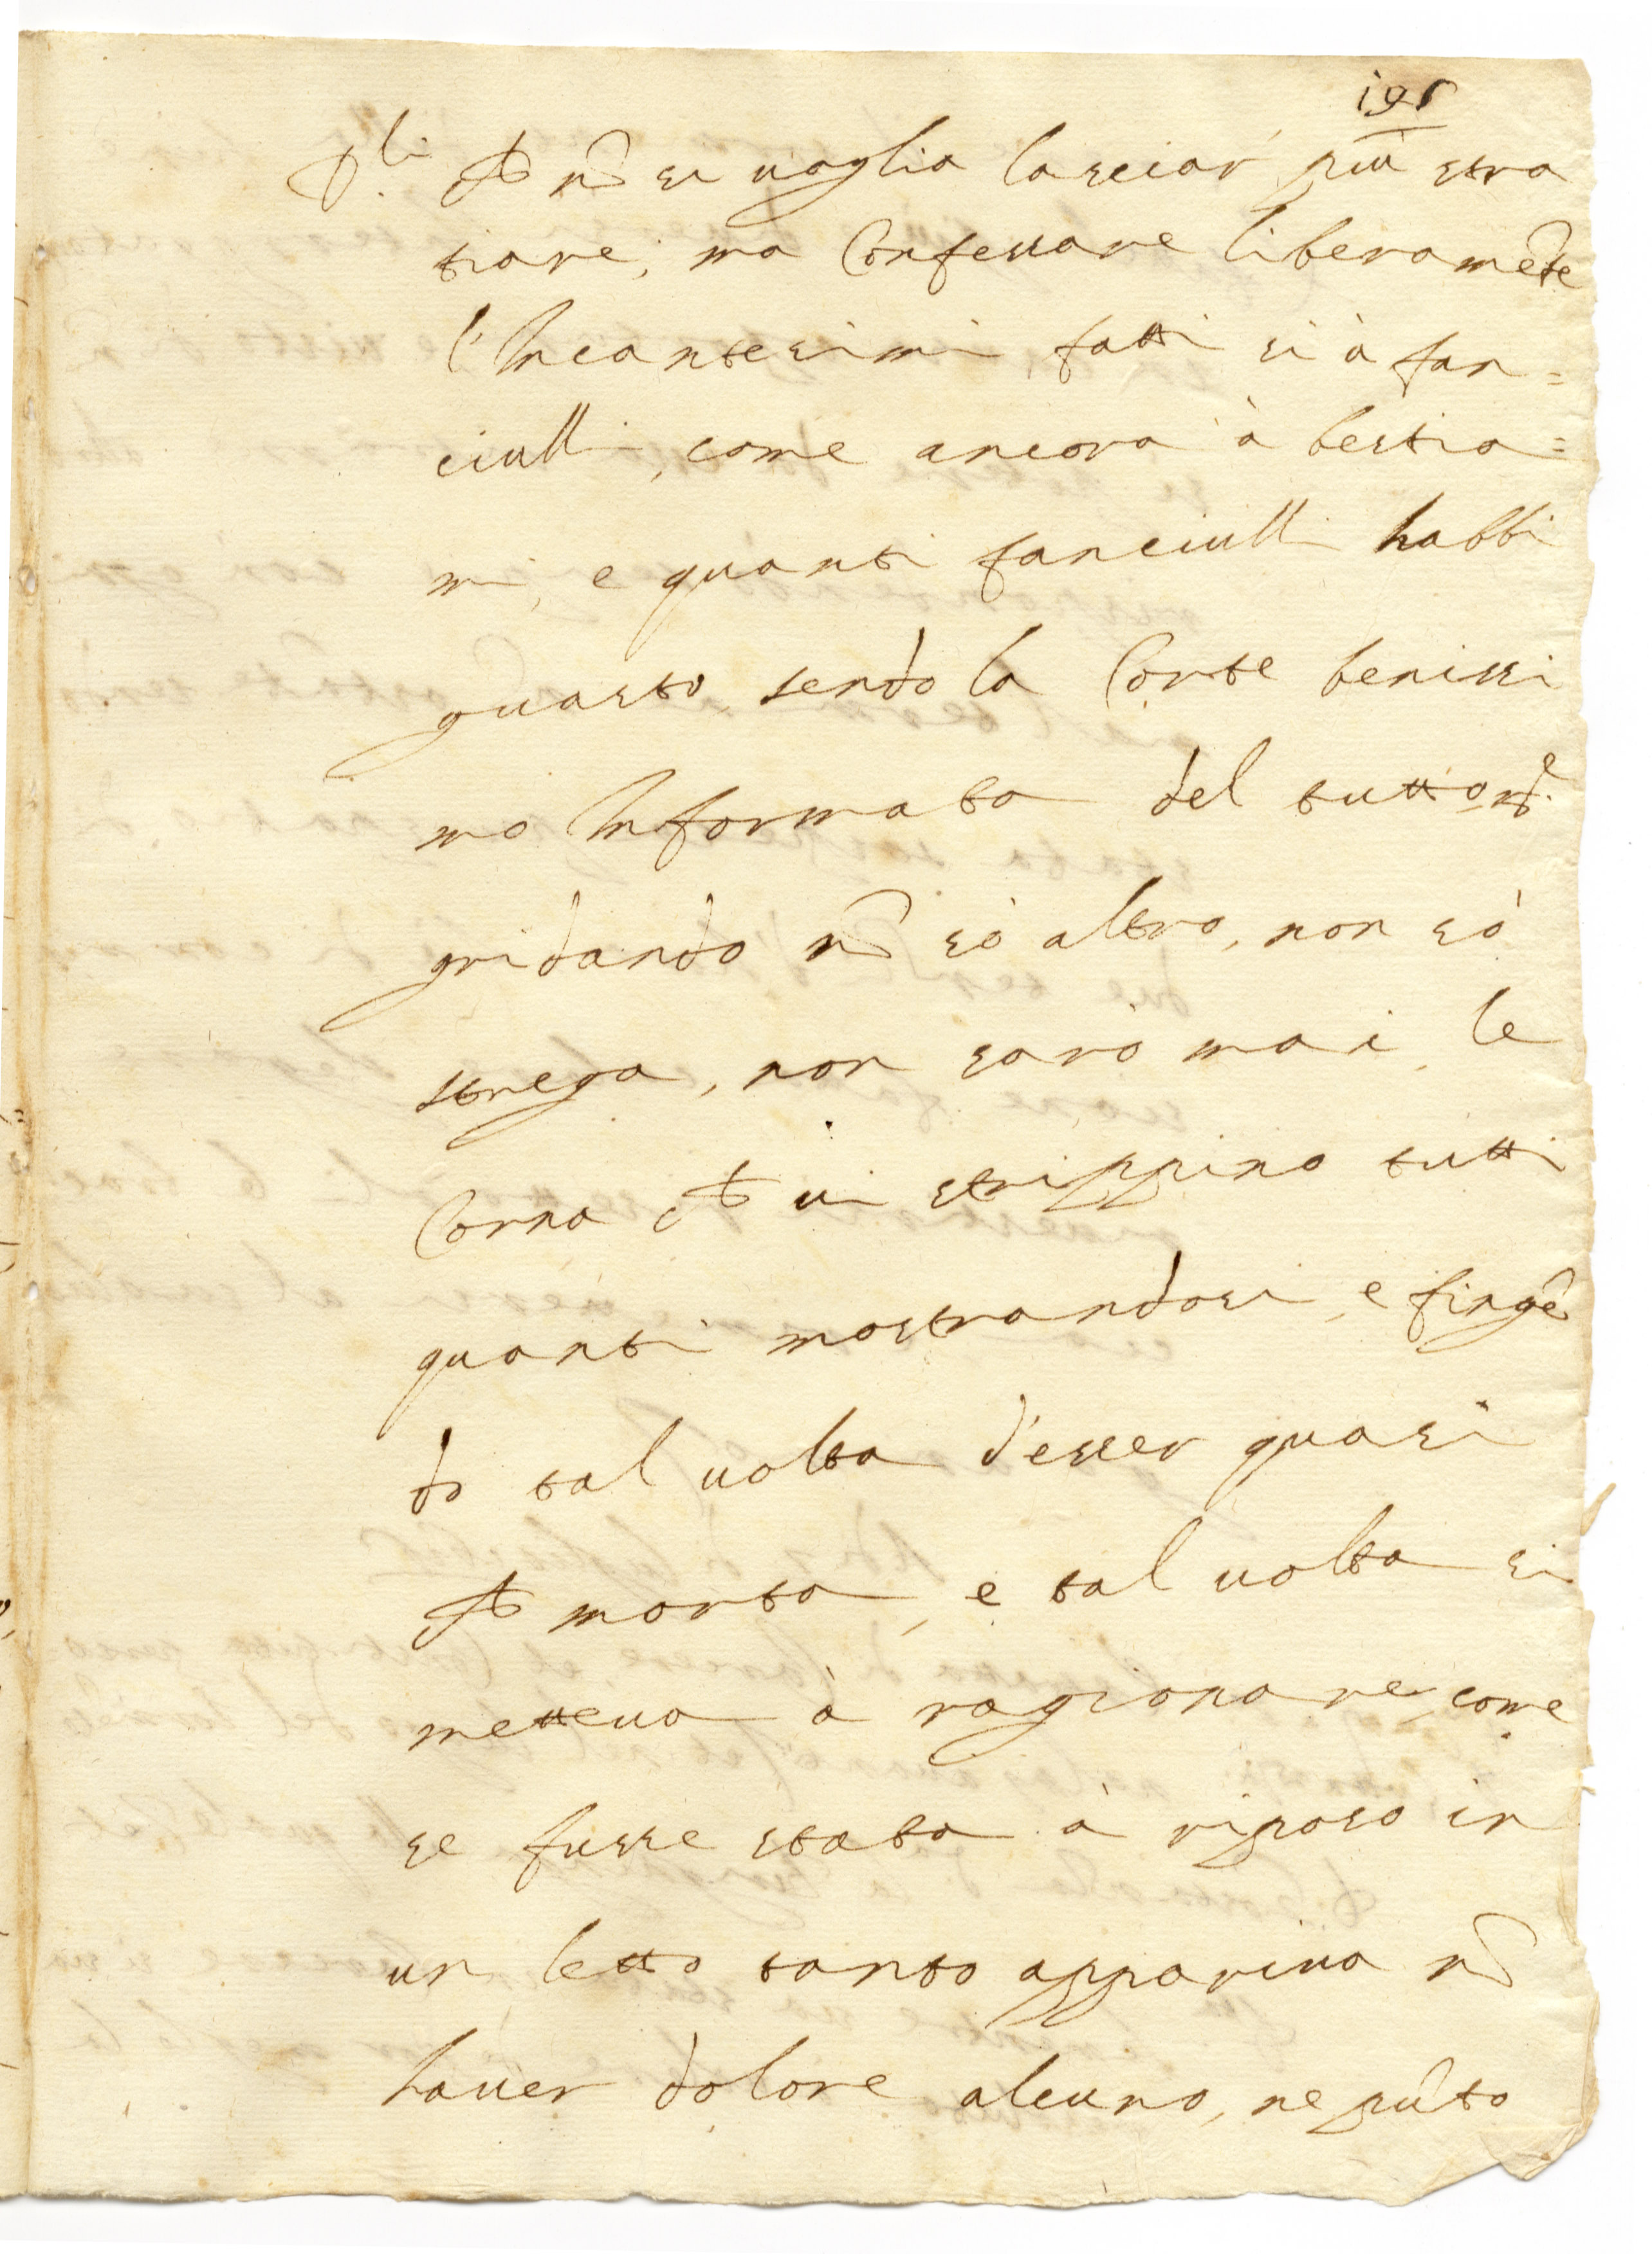 195
D.li Che nõ si uoglia lasciar più stra
tiare, ma Confessare liberamẽte
l'Incantesimi, fatti si à fan=
ciulli, come ancora à bestia=
mi, e quanti fanciulli habbi
guasto, sendo la Corte benissi
mo Informata del tutto, R.e
gridando nõ sò altro, non sò
strega, non sarò mai, le
Corna che ui strippino tutti
quanti mostrandosi, e fingẽ
do tal uolta d'esser quasi
che morta, e tal uolta si
metteua à ragionare, come
se fusse stata à riposo in
un letto tanto appariua nõ
hauer dolore alcuno, ne pũto